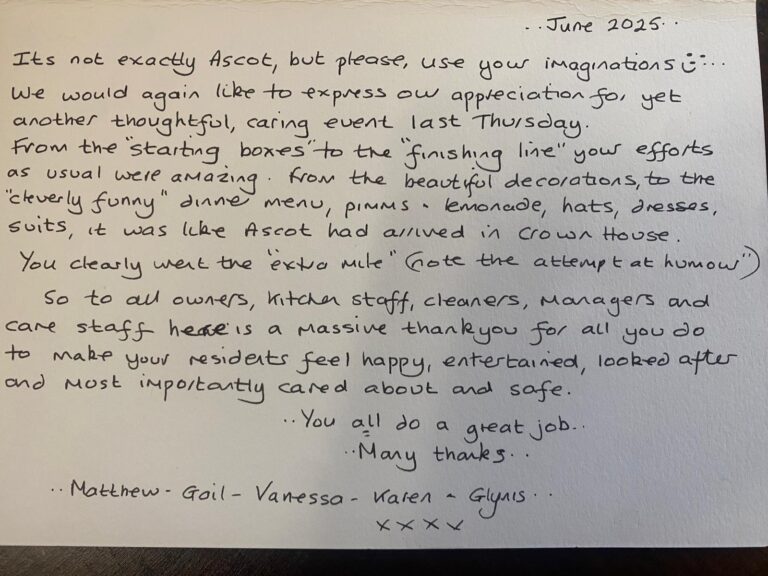 ..June 2025..
Its not exactly Ascot, but please, use your imaginations ü...
We would again like to express our appreciation for yet
another thoughtful, caring event last Thursday.
From the "starting boxes" to the "finishing line" your efforts
as usual were amazing. From the beautiful decorations, to the
"cleverly funny" dinner menu, pimms - lemonade, hats, dresses,
suits, it was like Ascot had arrived in Crown House.
You clearly went the "extra mile" (note the attempt at humour")
So to all owners, kitchen staff, cleaners, managers and
care staff here is a massive thankyou for all you do
to make your residents feel happy, entertained, looked after
and most importantly cared about and safe.
..You all do a great job..
..Many thanks..
..Matthew - Gail - Vanessa - Karen - Glynis..
x x x x